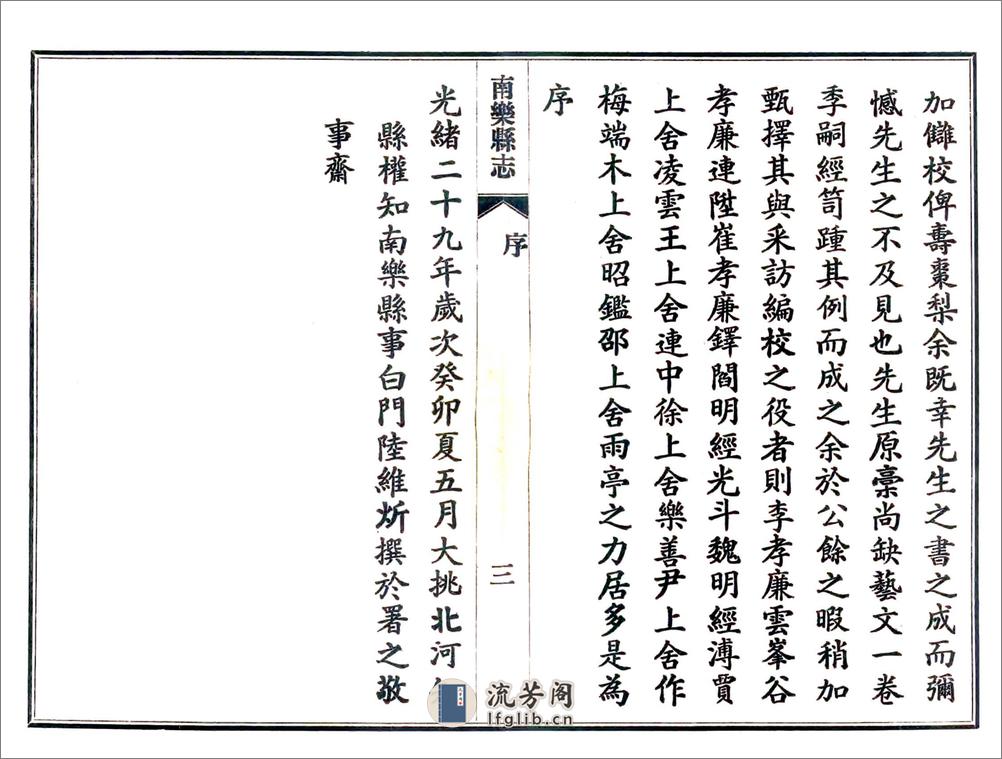 加讎校俾壽棗梨余既幸先生之書之成而彌
憾先生之不及見也先生原稾尚缺藝文一卷
季嗣經笥踵其例而成之余於公餘之暇稍加
甄擇其與采訪編校之役者則李孝廉雲峯谷
孝廉連陞崔孝廉鐸閻明經光斗魏明經溥賈
上舍凌雲王上舍連中徐上舍樂善尹上舍作
梅端木上舍昭鑑邵上舍雨亭之力居多是為
序
南樂縣志
序
三
光緒二十九年歲次癸卯夏五月大挑北河
縣權知南樂縣事白門陸維炘撰於署之敬
事齋
流芳阁
lfglib.cn